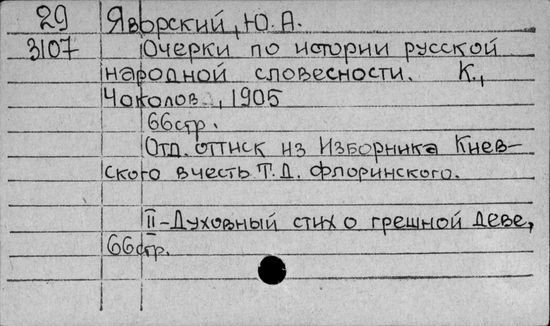 29 Яворский, Ю.А.
3107 Очерки по истории русской
народной словесности. К.,
Чоколов, 1905
66 стр.
Отд. оттиск из Изборника Киев-
ского в честь Т.Д. Флоринского.
II - Духовный стих о грешной деве,
66 стр.